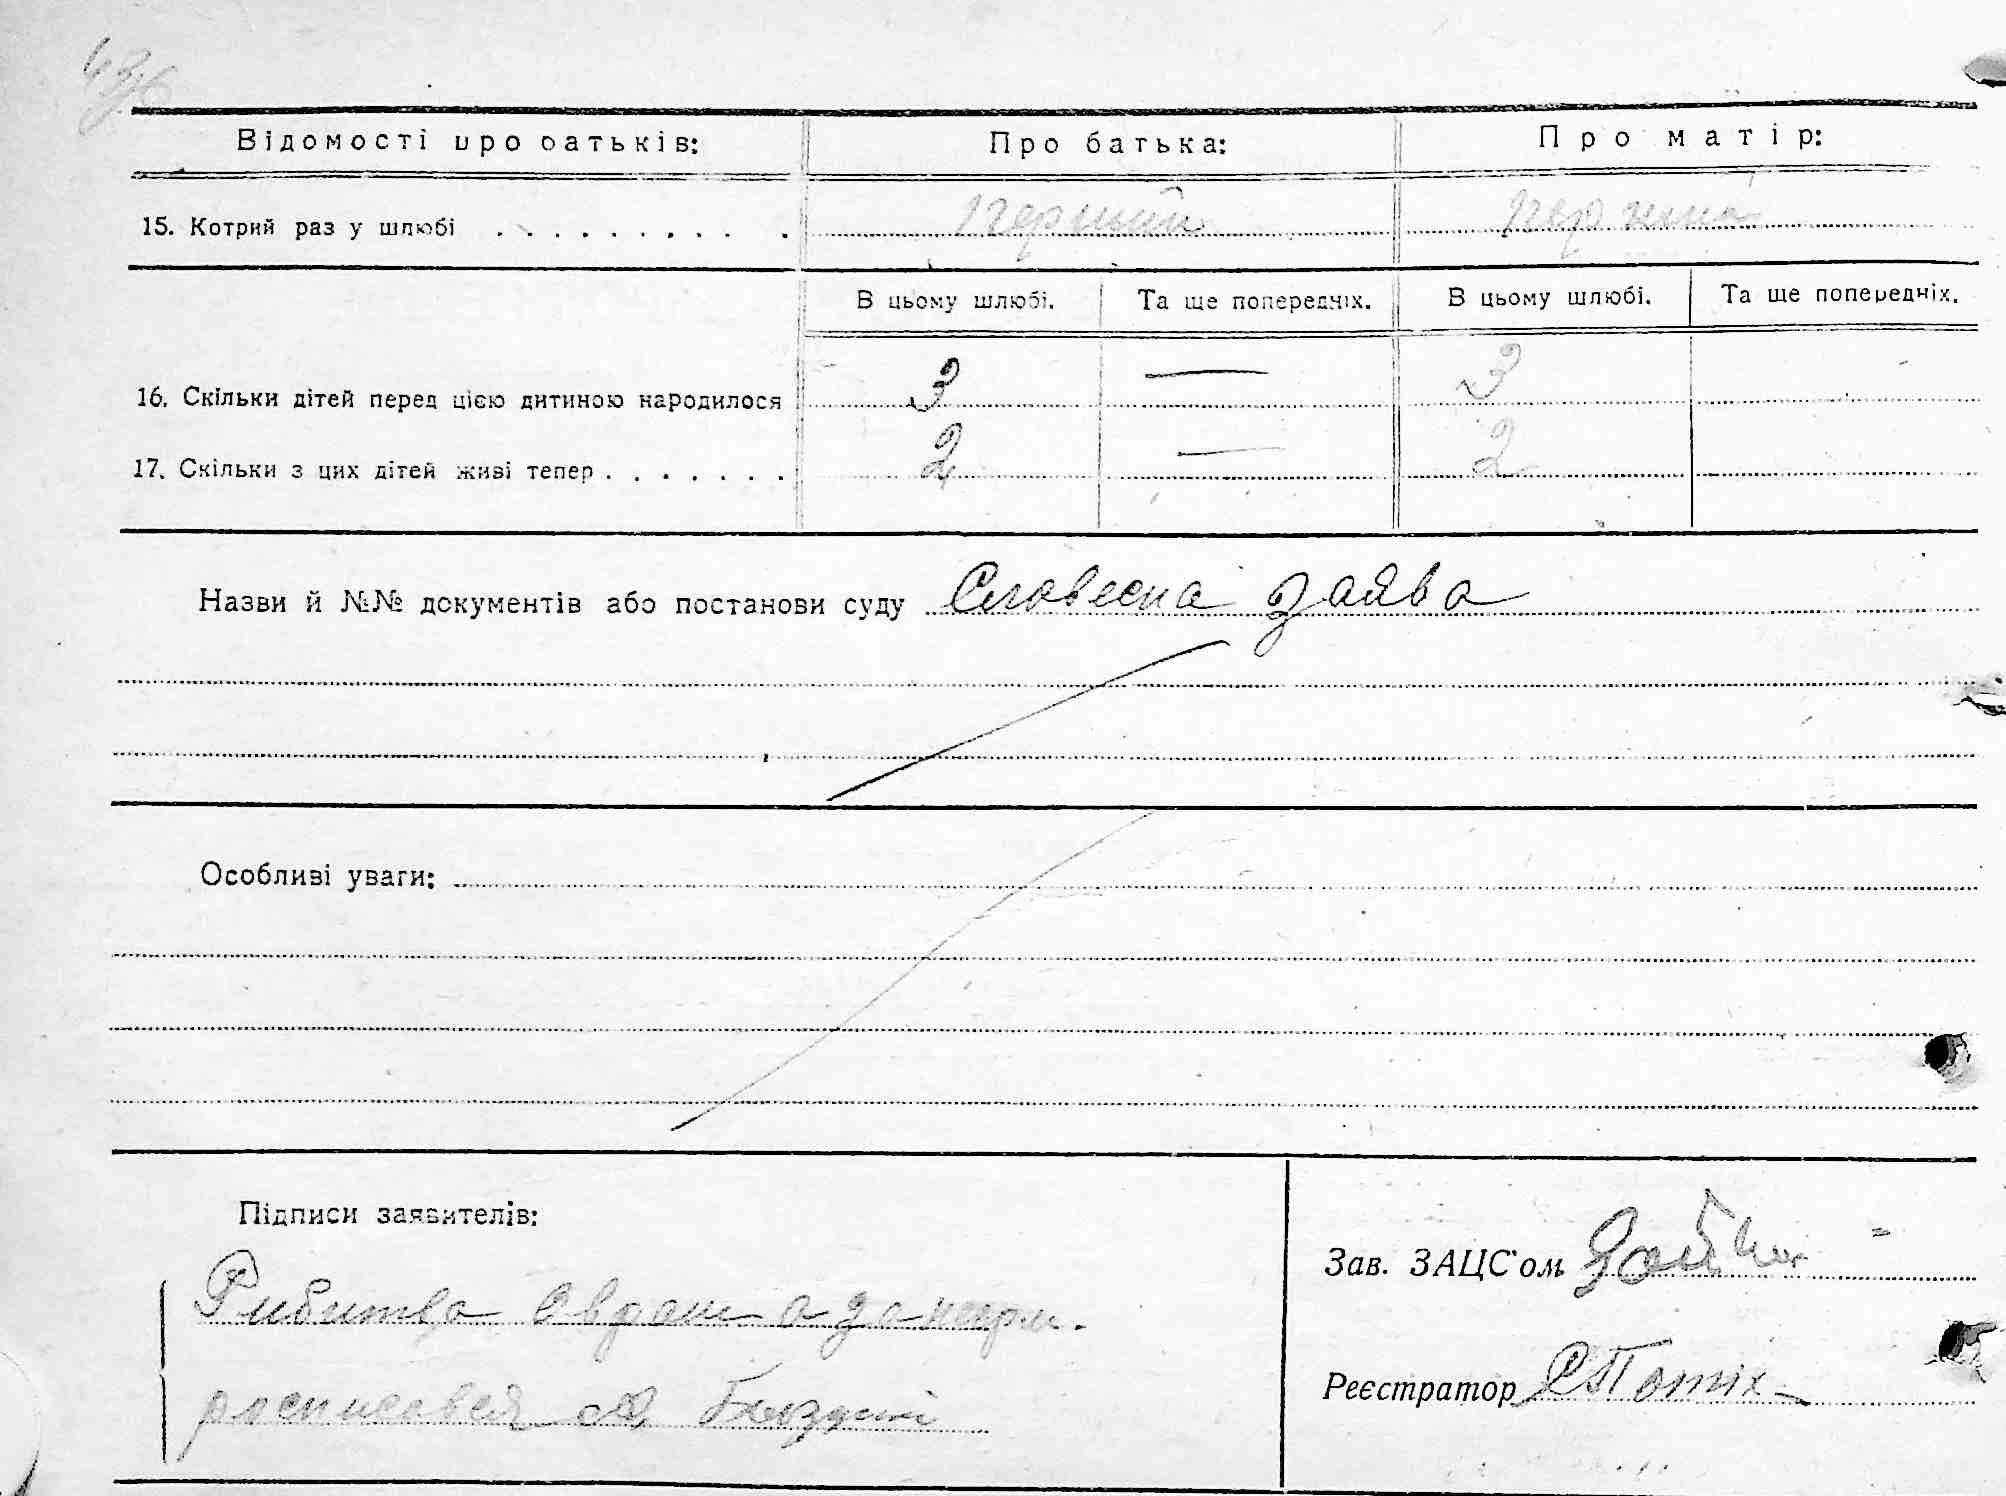 Відомості про батьків:
Про батька:
Про матір:
15. Котрий раз у шлюбі . . . . . . . . . .
Перший
Перший
В цьому шлюбі.
Та ще попередніх.
В цьому шлюбі.
Та ще попередніх.
16. Скільки дітей перед цією дитиною народилося
3
—
3
17. Скільки з цих дітей живі тепер . . . . . . .
2
—
2
Назви й №№ документів або постанови суду Словесна заява
Особливі уваги:
Підписи заявителів:
Зав. ЗАЦС'ом
росписався
Реєстратор